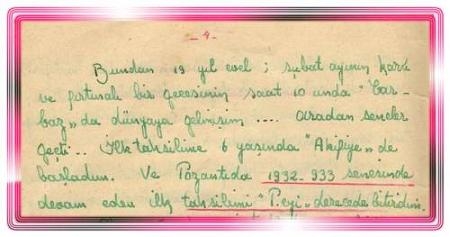 - 4 -
Bundan 19 yıl evel ; şubat ayının karlı
ve fırtınalı bir gecesinin saat 10 unda "Çar-
baz„ da dünyaya gelmişim .... aradan seneler
geçti .. İlk tahsilime 6 yaşında "Akifiye„ de
başladım. Ve Pozantıda 1932-933 senesinde
devam eden ilk tahsilimi "P.eyi„ derecede bitirdim.